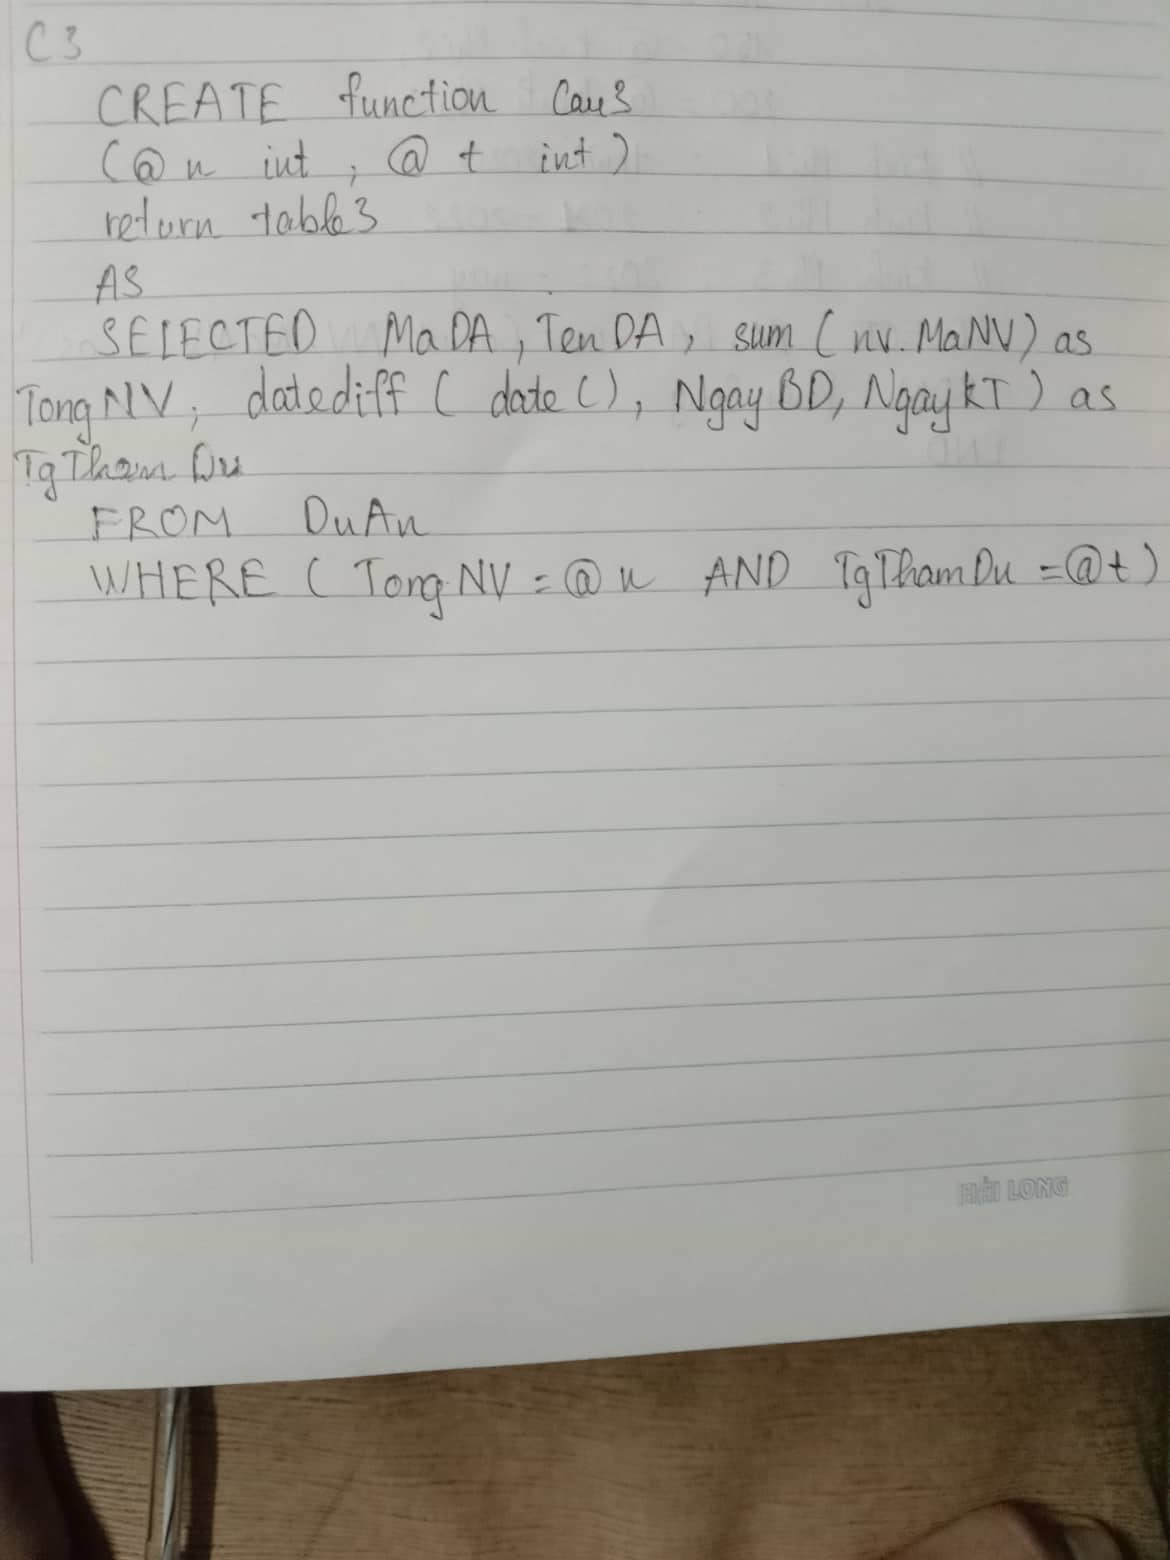 C3
CREATE function Cau3
(@n int, @t int)
return table3
AS
SELECTED MaDA, TenDA, sum (nv.MaNV) as
TongNV, datediff ( date(), NgayBD, NgayKT) as
TgThamDu
FROM DuAn
WHERE ( TongNV = @n AND TgThamDu = @t)
HẢI LONG